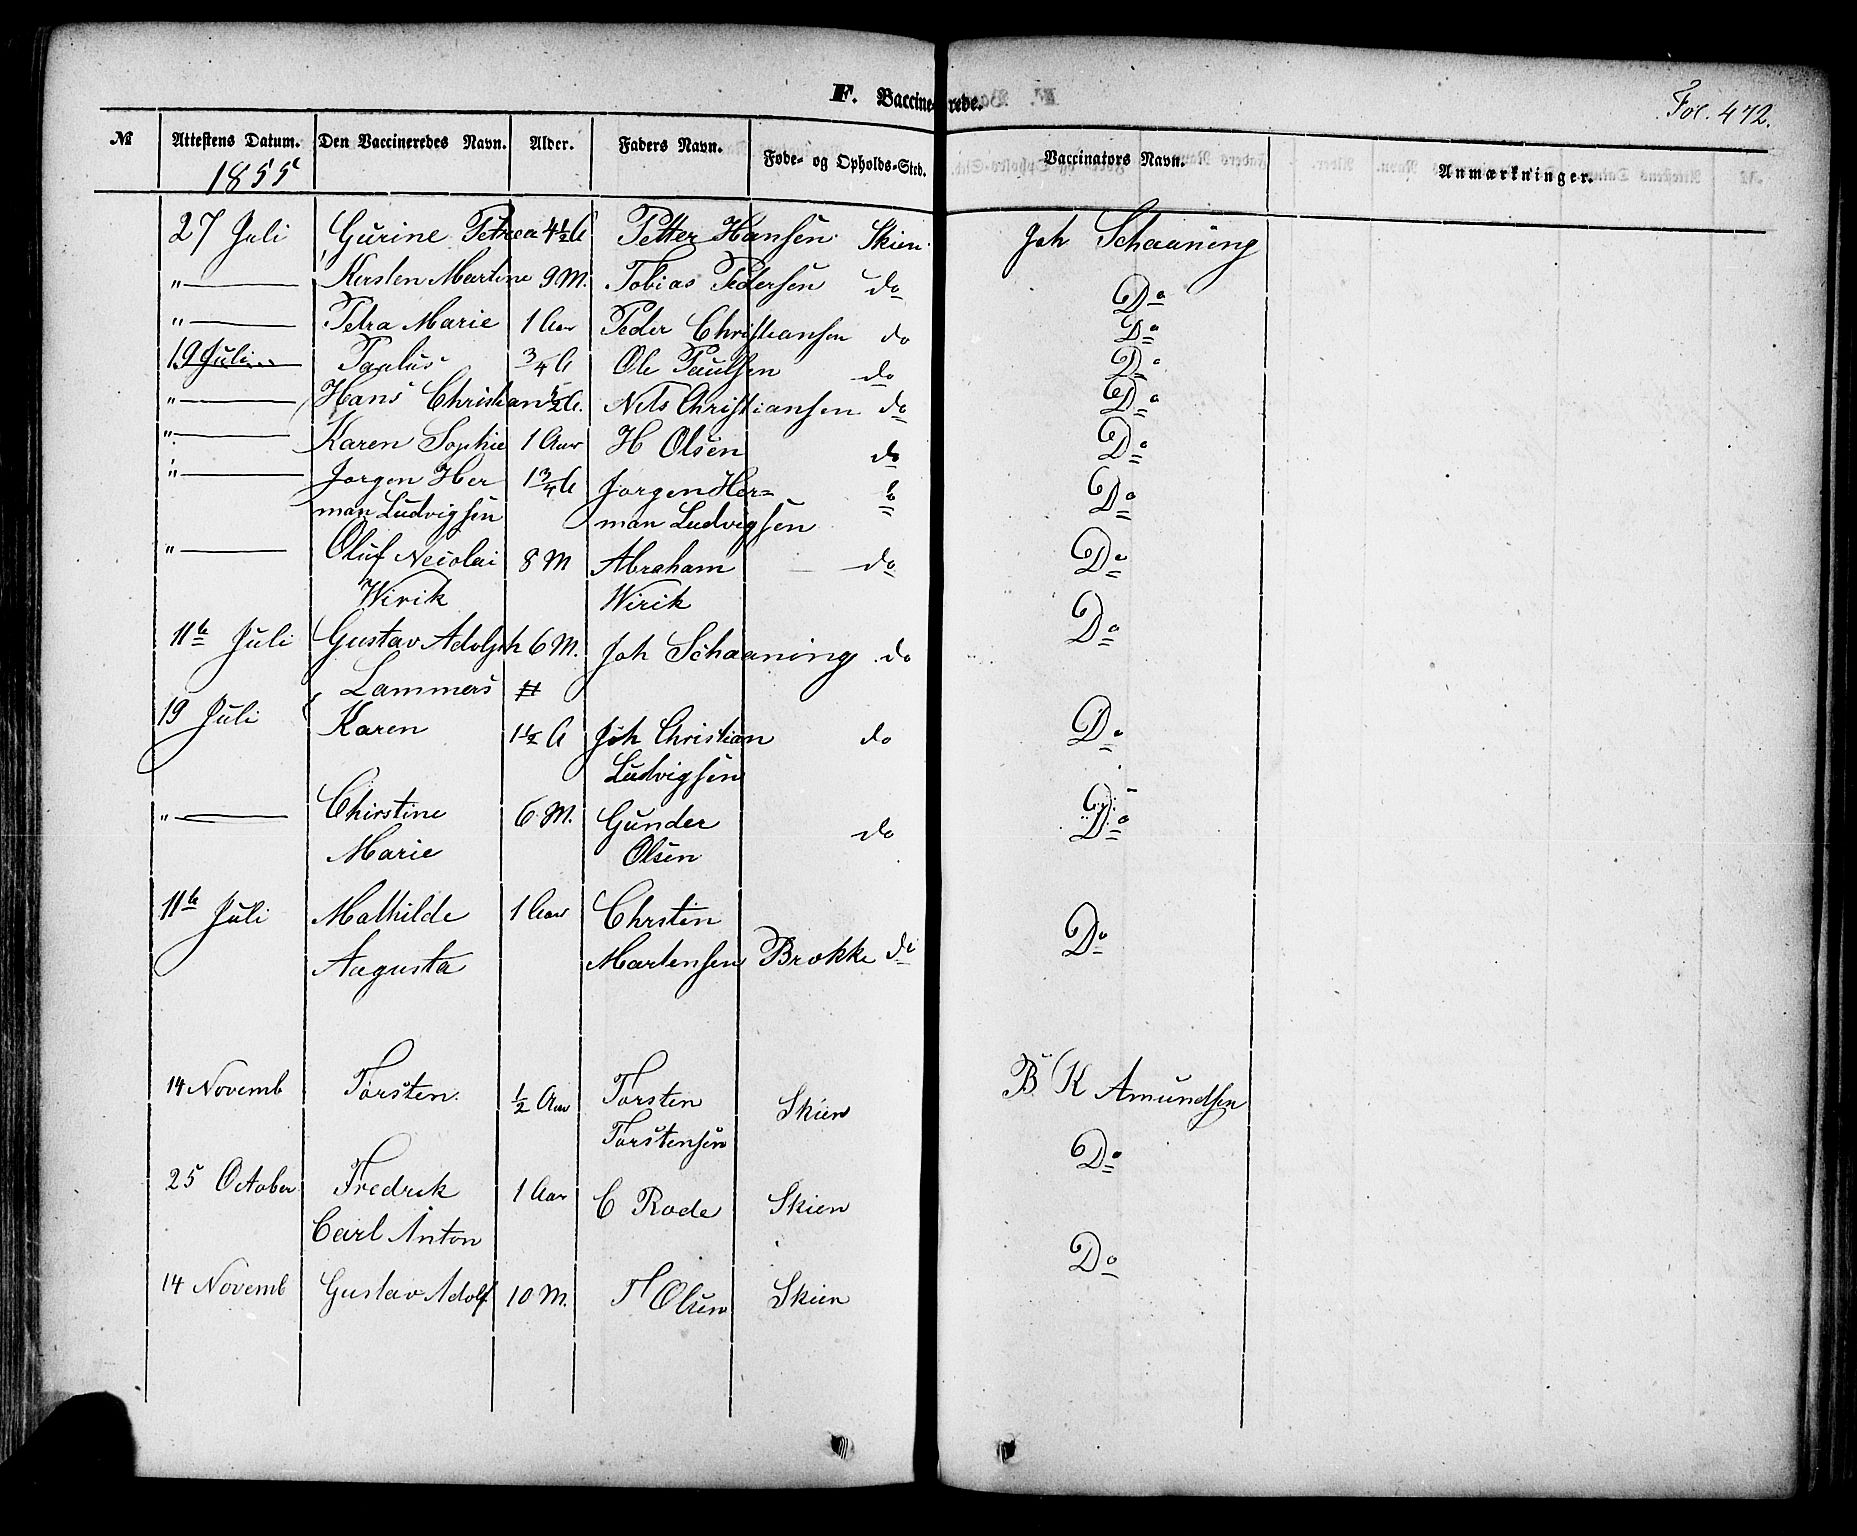 F. Vaccinerede.
Fol. 472.
№ Attestens Datum. Den Vaccineredes Navn. Alder. Faders Navn. Føde- og Opholds-Sted. Vaccinators Navn. Anmærkninger.
1855
27 Juli Gurine Petrea 4½ A Petter Hansen Skien Joh Schaaning
" Kirsten Martine 9 M. Tobias Pedersen do Do
" Petra Marie 1 Aar Peder Christiansen do Do
19 Juli Paulus ¾ A Ole Paulsen do Do
" Hans Christian ½ A. Nils Christiansen do Do
" Karen Sophie 1 Aar H Olsen do Do
" Jørgen Her 1¾ A Jorgen Her= do Do
man Ludvigsen man Ludvigsen
" Oluf Nicolai 8 M Abraham do Do
Wirik Wirik
11te Juli Gustav Adolph 6 M. Joh Schaaning do Do
Lammers #
19 Juli Karen 1½ A Joh Christian do Do
Ludvigsen
" Chirstine 6 M. Gunder do Do
Marie Olsen
11te Juli Mathilde 1 Aar Chrsten Do
Augusta Martensen Brekke do
14 Novemb Torsten ½ Aar Torsten Skien B K Amundsen
Torstensen
25 October Fredrik 1 Aar C Rode Skien Do
Carl Anton
14 Novemb Gustav Adolf 10 M. T Olsen Skien Do